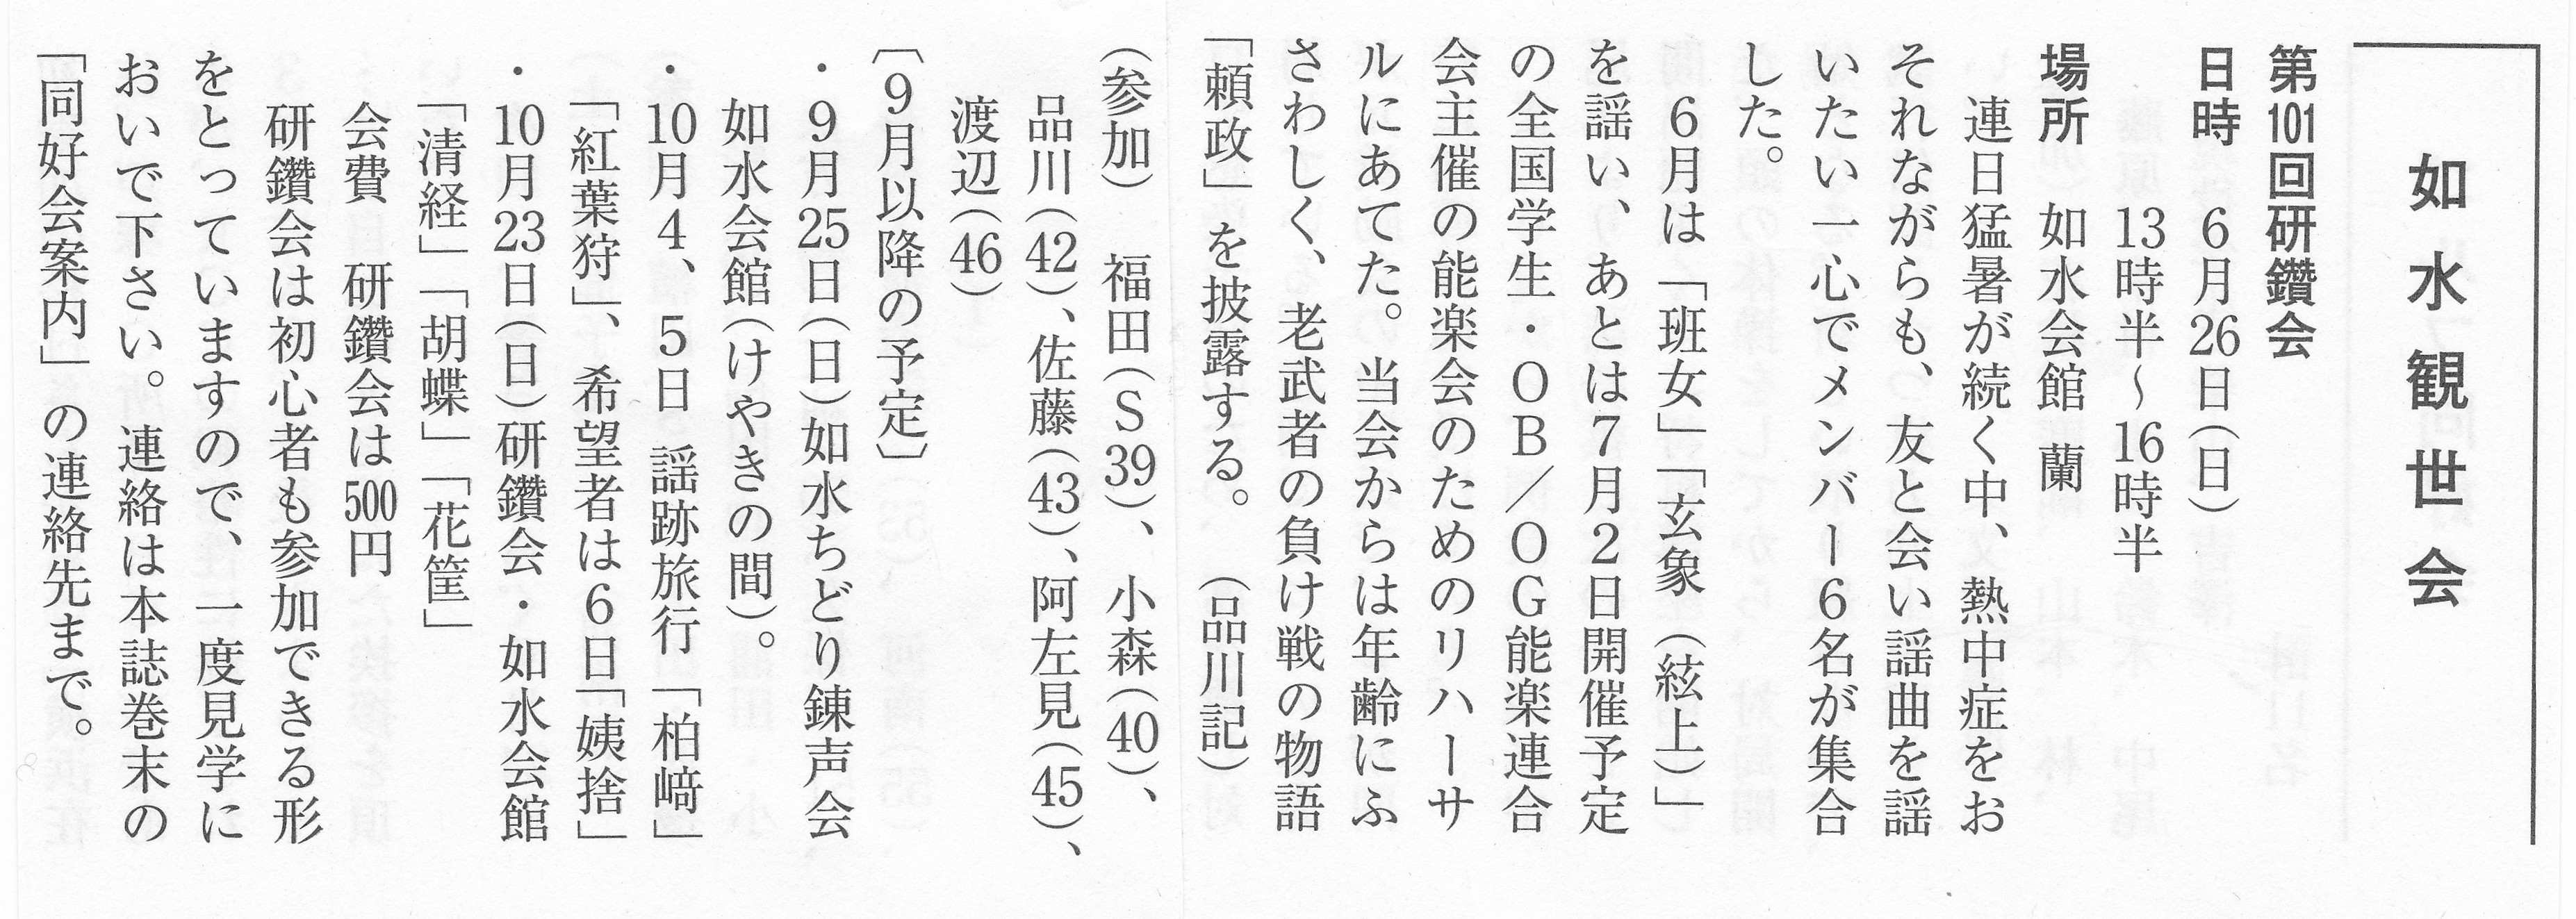 如水観世会
第101回研鑽会
日時　6月26日（日）
13時半～16時半
場所　如水会館　蘭
連日猛暑が続く中、熱中症をお
それながらも、友と会い謡曲を謡
いたい一心でメンバー6名が集合
した。
6月は「班女」「玄象（絃上）」
を謡い、あとは7月2日開催予定
の全国学生・OB／OG能楽連合
会主催の能楽会のためのリハーサ
ルにあてた。当会からは年齢にふ
さわしく、老武者の負け戦の物語
「頼政」を披露する。　（品川記）
（参加）　福田（S39）、小森（40）、
品川（42）、佐藤（43）、阿左見（45）、
渡辺（46）
〔9月以降の予定〕
・9月25日（日）如水ちどり錬声会
如水会館（けやきの間）。
・10月4、5日　謡跡旅行「柏﨑」
「紅葉狩」、希望者は6日「姨捨」
・10月23日（日）研鑽会・如水会館
「清経」「胡蝶」「花筐」
会費　研鑽会は500円
研鑽会は初心者も参加できる形
をとっていますので、一度見学に
おいで下さい。連絡は本誌巻末の
「同好会案内」の連絡先まで。